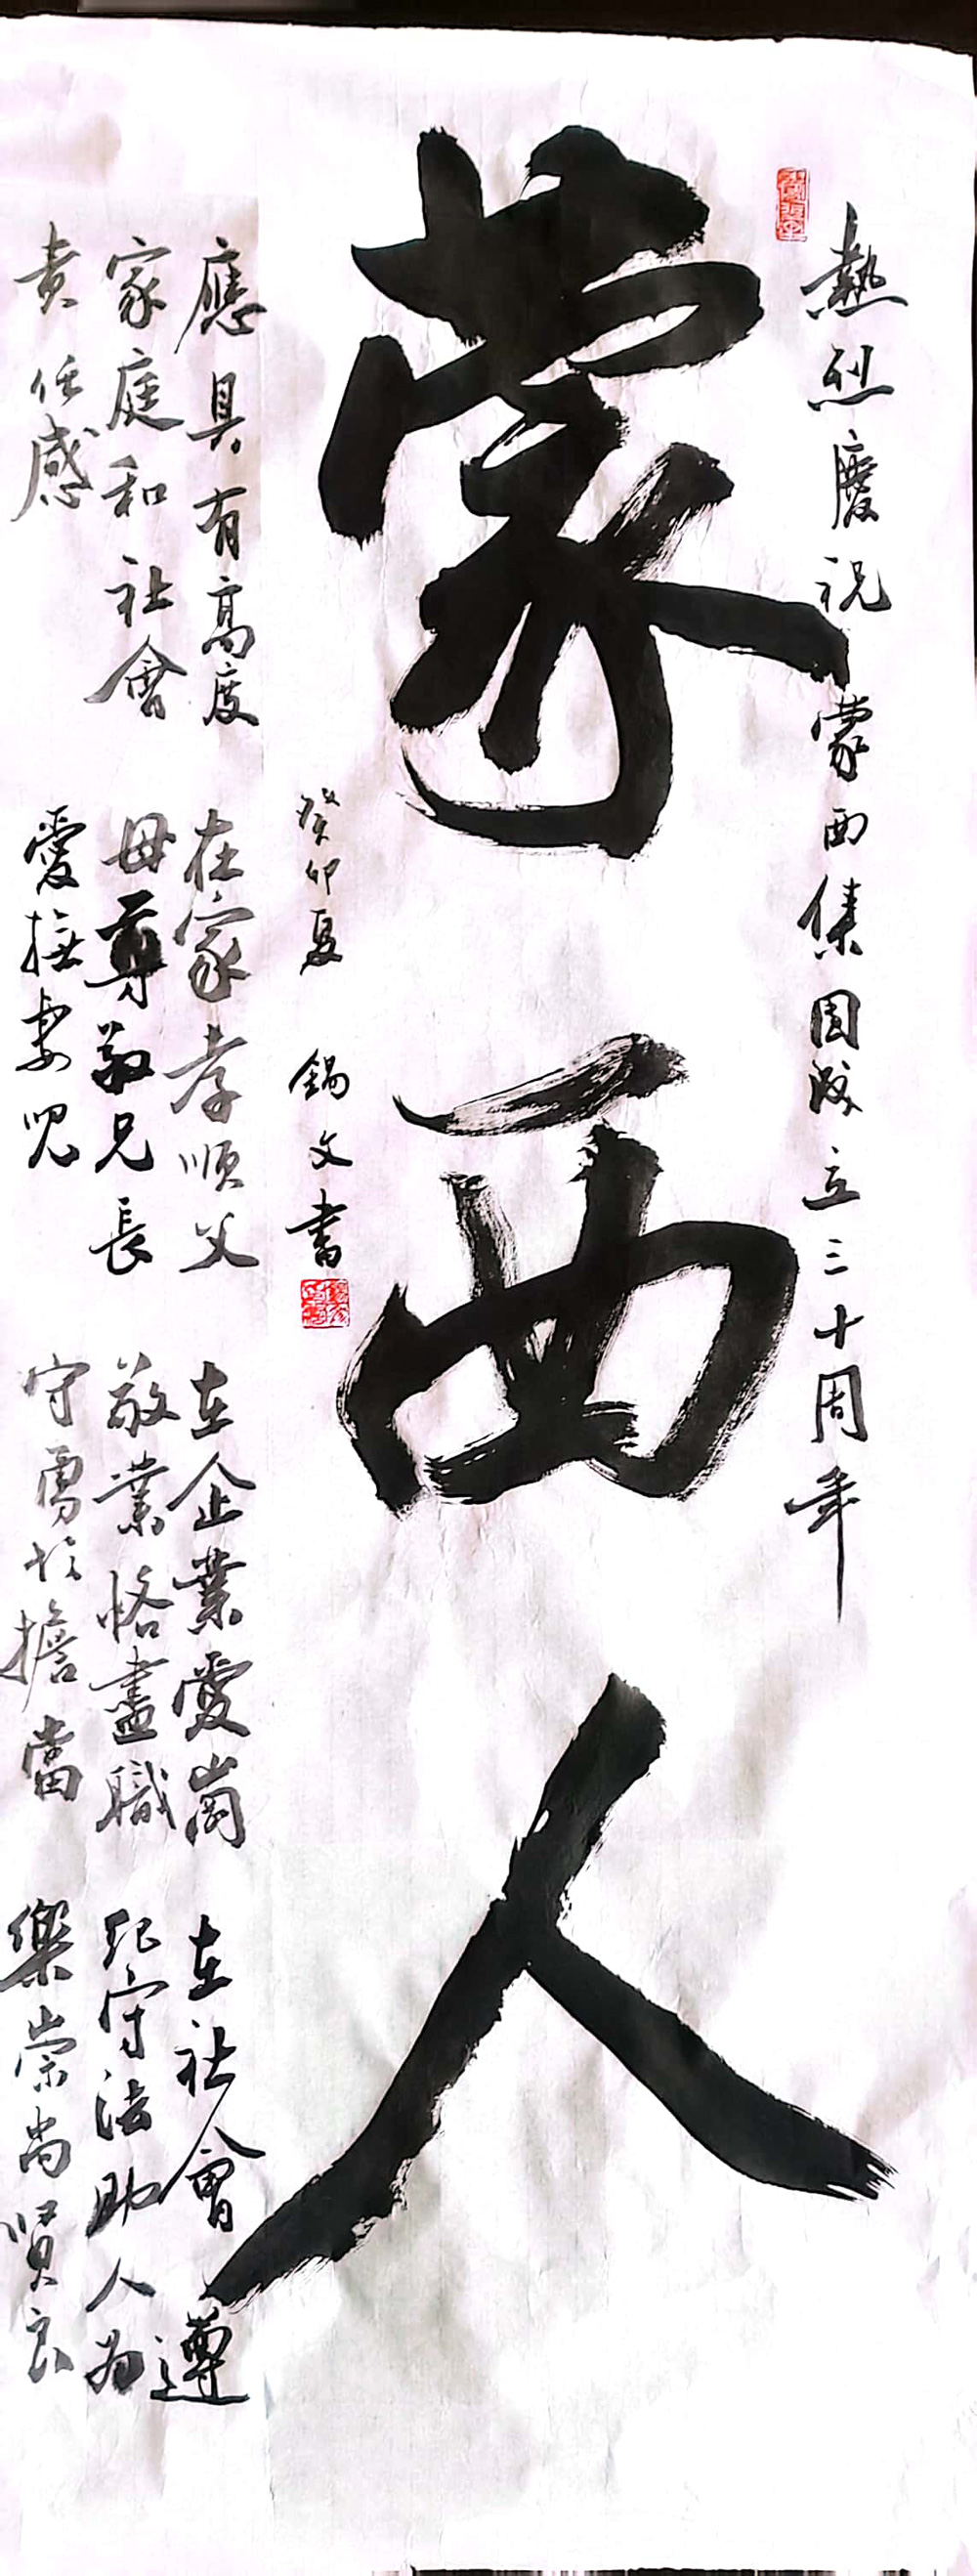 熱烈慶祝蒙西集團成立三十周年
蒙西人
癸卯夏 錫文書
應具有高度
家庭和社會
責任感
在家孝順父
母尊敬兄長
愛撫妻児
在企業愛崗
敬業恪盡職
守勇於擔當
在社會遵
紀守法助人為
樂崇尚賢良